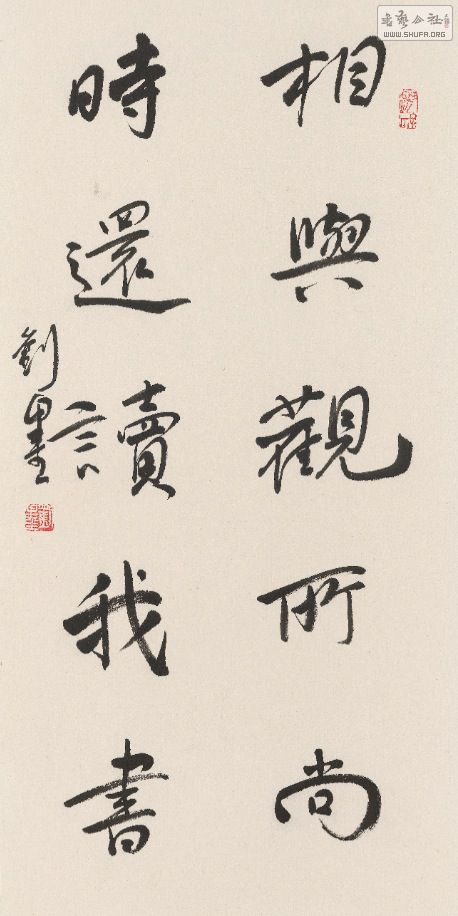 書藝公社
WWW.SHUFA.ORG
相與觀所尚
時還讀我書
劉墨